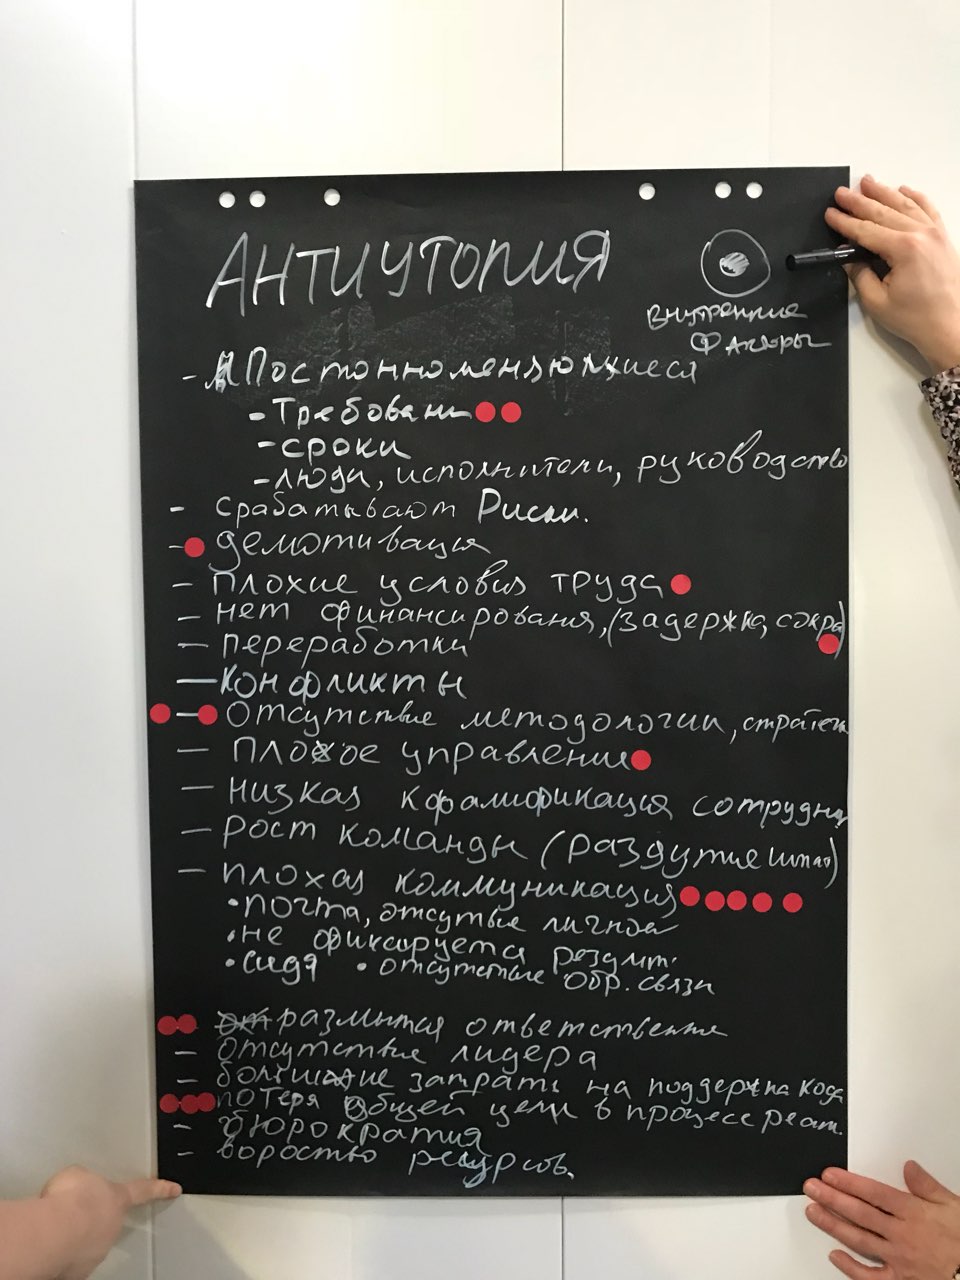 АНТИУТОПИЯ
Внутренние
Факторы
- Постонноменяющиеся
- Требовани
- сроки
- люди, исполнители, руководство
- срабатывают Риски.
- демотивация
- плохие условия труда
- нет финансирования, (задержка, сокра)
- переработки
- конфликты
- отсутствие методологии, стратеги
- плохое управление
- низкая кфалификация сотрудни
- рост команды (раздутие штат)
- плохая коммуникация
• почта, отсутвие личной
• не фиксируется резулт.
• сидя • отсутствие обр. связи
размытая ответственне
- отсутствие лидера
- большие затраты на поддержка кода
потеря общей цели в процессе реал.
- бюрократия
- вороство ресурсов.